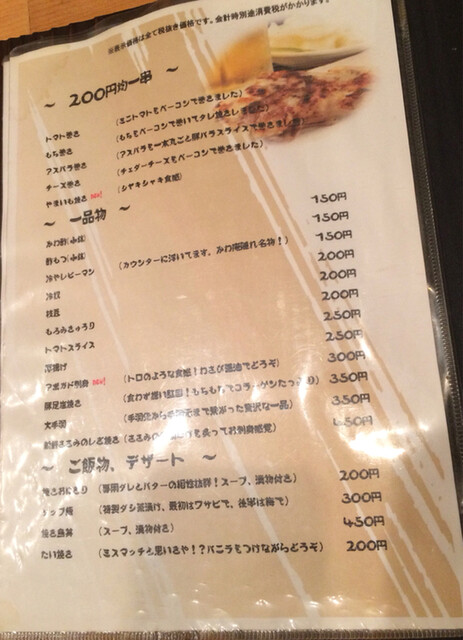 ※表示価格は全て税抜き価格です。会計時別途消費税がかかります。
～ 200円均一串 ～
トマト巻き （ミニトマトをベーコンで巻きました）
もち巻き （もちをベーコンで巻いてタレ焼きしました）
アスパラ巻き （アスパラを一本丸ごと豚バラスライスで巻きました）
チーズ巻き （チェダーチーズをベーコンで巻きました）
やまいも焼き （シャキシャキ食感）
～ 一品物 ～
かわ酢（小鉢） 150円
酢もつ（小鉢） 150円
冷やしピーマン （カウンターに浮いてます。かわ庵隠れ名物！） 150円
冷奴 200円
枝豆 200円
もろみきゅうり 200円
トマトスライス 250円
厚揚げ 250円
アボガド刺身 （トロのような食感！わさび醤油でどうぞ） 300円
豚足塩焼き （食わず嫌い厳禁！もちもちでコラーゲンたっぷり） 350円
大手羽 350円
450円
～ ご飯物、デザート ～
焼きおにぎり （専用ダレとバターの相性抜群！スープ、漬物付き） 200円
（特製ダシ茶漬け、最初はワサビで、後半は梅で） 300円
焼き鳥丼 （スープ、漬物付き） 450円
たい焼き （ミスマッチと思いきや！？バニラをつけながらどうぞ） 200円